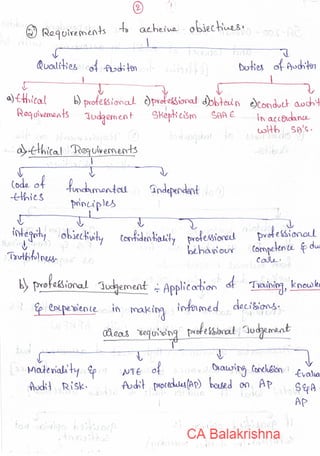 8
② Requirements to acheive objectives.
Qualities of Auditor Duties of Auditor
a) Ethical b) professional c) professional d) Obtain e) Conduct audit
Requirements Judgement Skepticism SAAE in accordance
with SA's.
a) Ethical Requirements
Code of fundamental Independent
-Ethics principles
integrity objectivity confidentiality professional professional
behaviour competence & du
Truthfulness care.
b) professional Judgement ÷ Application of Training, knowle
& Experience in making informed decisions.
Areas requiring professional Judgement
Materiality & NTE of Drawing Conclusion Evalua
Audit Risk. Audit procedures(AP) based on AP S&A
AP
CA Balakrishna